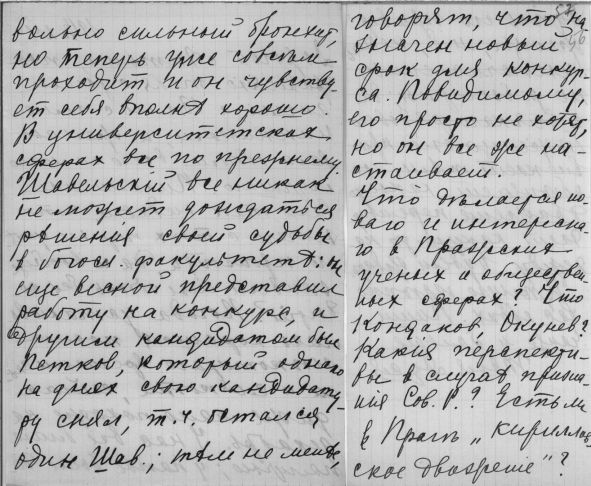 вольно сильный бронхит,
но теперь уже совсем
проходит и он чувству-
ет себя вполнѣ хорошо.
В университетских
сферах все по прежнему.
Шавельскій все никак
не может дождаться
рѣшенія своей судьбы
в богосл. факультетѣ:
еще весной представил
работу на конкурс, и
другим кандидатом был
Петков, который однако
на днях свою кандидату-
ру снял, т.ч. остался
один Шав.; тѣм не менѣе,
говорят, что на-
значен новый
срок для конкур-
са. Повидимому,
его просто не хотят,
но он все же на-
стаивает.
Что дѣлается но-
ваго и интересна-
го в Пражских
ученых и обществен-
ных сферах? Что
Кондаков, Окунев?
Какія перспекти-
вы в случаѣ призна-
нія Сов. Р.? Есть ли
в Прагѣ „Кириллов-
ское движеніе"?